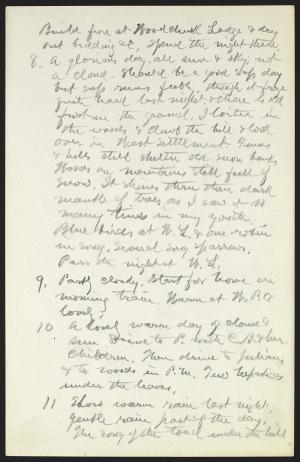 Build fire at Woodchuck Lodge & dry
out bedding &c. Spend the night there
8. A glorious day, all sun & sky, not
a cloud. Should be a good sap day
but sap runs feebly, though it froze
quite hard last night; there is old
frost in the ground. I loiter in
the woods & climb the hill & look
over in West Settlement. Fences
& hills still shelter old snow banks
Woods on mountains still full of
snow. It shines thro their dark
mantle of trees as I saw it so
many times in my youth.
Blue birds at W. L. & one robin
in song. Several song sparrows.
Pass the night at W. L.
9. Partly cloudy. Start for home on
morning train. Warm at W. P. &
lovely.
10 A lovely warm day of cloud &
sun. Drive to P. with C. B. & her
children. Then drive to Julians
& to woods in P.M. Two hepaticas
under the leaves.
11 Slow warm rain last night,
gentle rain part of the day.
The song of the toad under the hill